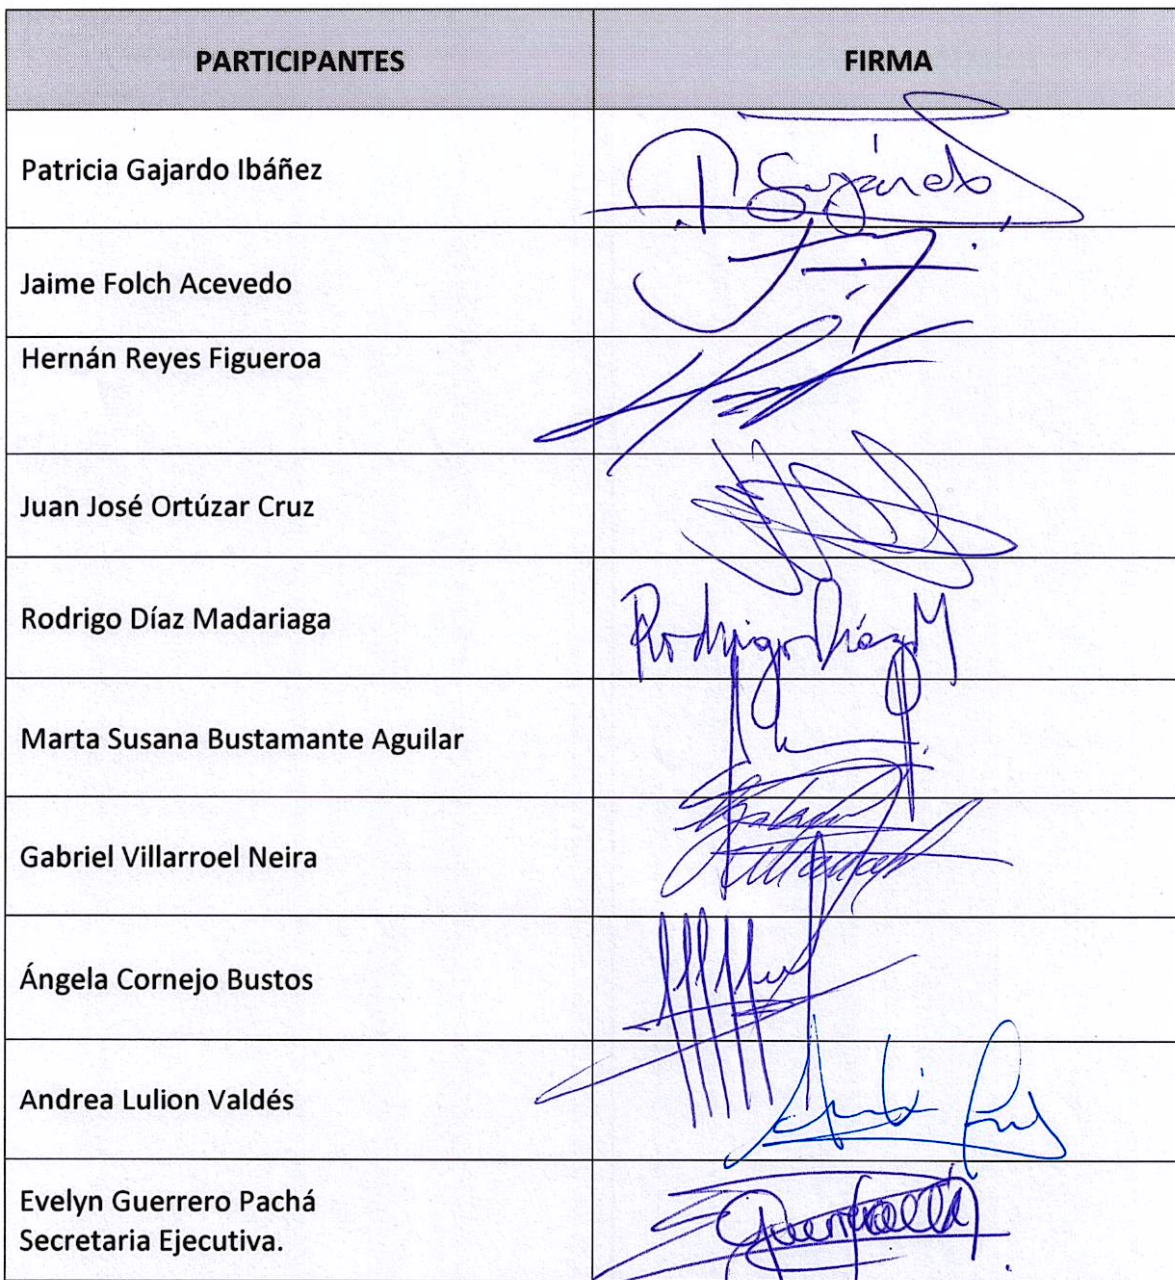 PARTICIPANTES FIRMA
Patricia Gajardo Ibáñez P. Gajardo
Jaime Folch Acevedo
Hernán Reyes Figueroa
Juan José Ortúzar Cruz
Rodrigo Díaz Madariaga Rodrigo Díaz M
Marta Susana Bustamante Aguilar
Gabriel Villarroel Neira
Ángela Cornejo Bustos
Andrea Lulion Valdés
Evelyn Guerrero Pachá
Secretaria Ejecutiva.